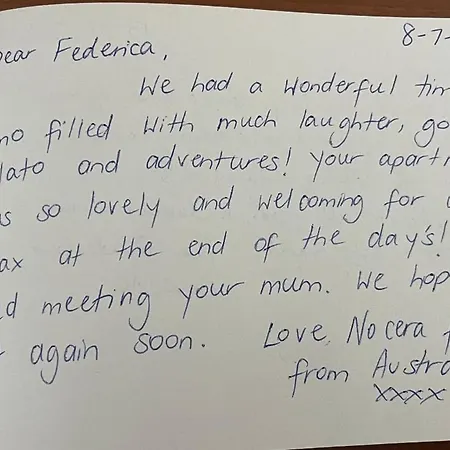 8-7-
ear Federica,
We had a wonderful tim
no filled with much laughter, go
lato and adventures! Your apart
s so lovely and welcoming for
ax at the end of the day's!
d meeting your mum. We hop
again soon.
Love, Nocera
from Austra
xxxx